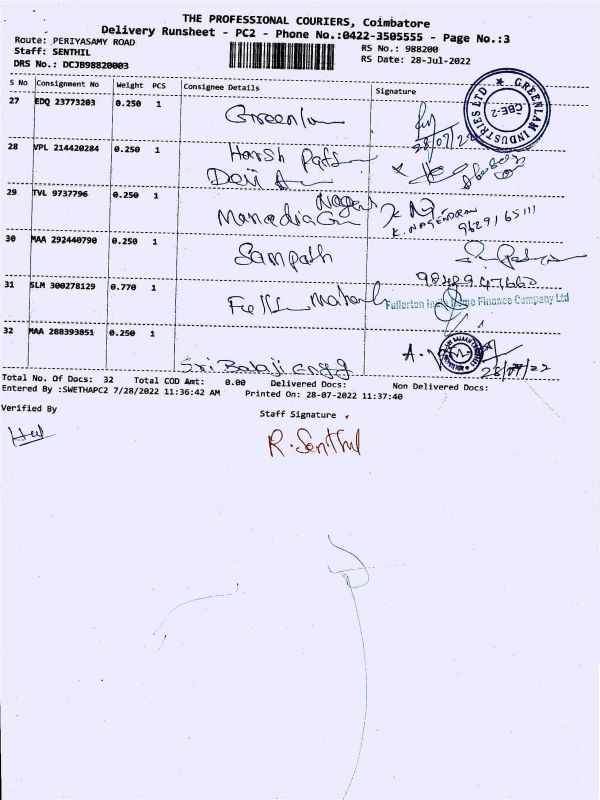 THE PROFESSIONAL COURIERS, Coimbatore
Delivery Runsheet - PC2 - Phone No.:0422-3505555 - Page No.:3
Route: PERIYASAMY ROAD
RS No.: 988200
Staff: SENTHIL
RS Date: 28-Jul-2022
DRS No.: DCJB98820003
S No Consignment No Weight PCS Consignee Details Signature
GREENLAM INDUSTRIES LTD CBE-2
27 EDQ 23773203 0.250 1 Greenlam
28/07/22
28 VPL 214420284 0.250 1 Harsh
Devi
29 TVL 9737796 0.250 1 Nagen
K. NAGENDRAN 9629165111
30 MAA 292440790 0.250 1 Sampath
9842947660
31 SLM 300278129 0.770 1
Fullerton India Home Finance Company Ltd
32 MAA 288393851 0.250 1 Sri Balaji Engg
28/07/22
Total No. Of Docs: 32 Total COD Amt: 0.00 Delivered Docs: Non Delivered Docs:
Entered By :SWETHAPC2 7/28/2022 11:36:42 AM Printed On: 28-07-2022 11:37:40
Verified By
Staff Signature
R. Senthil